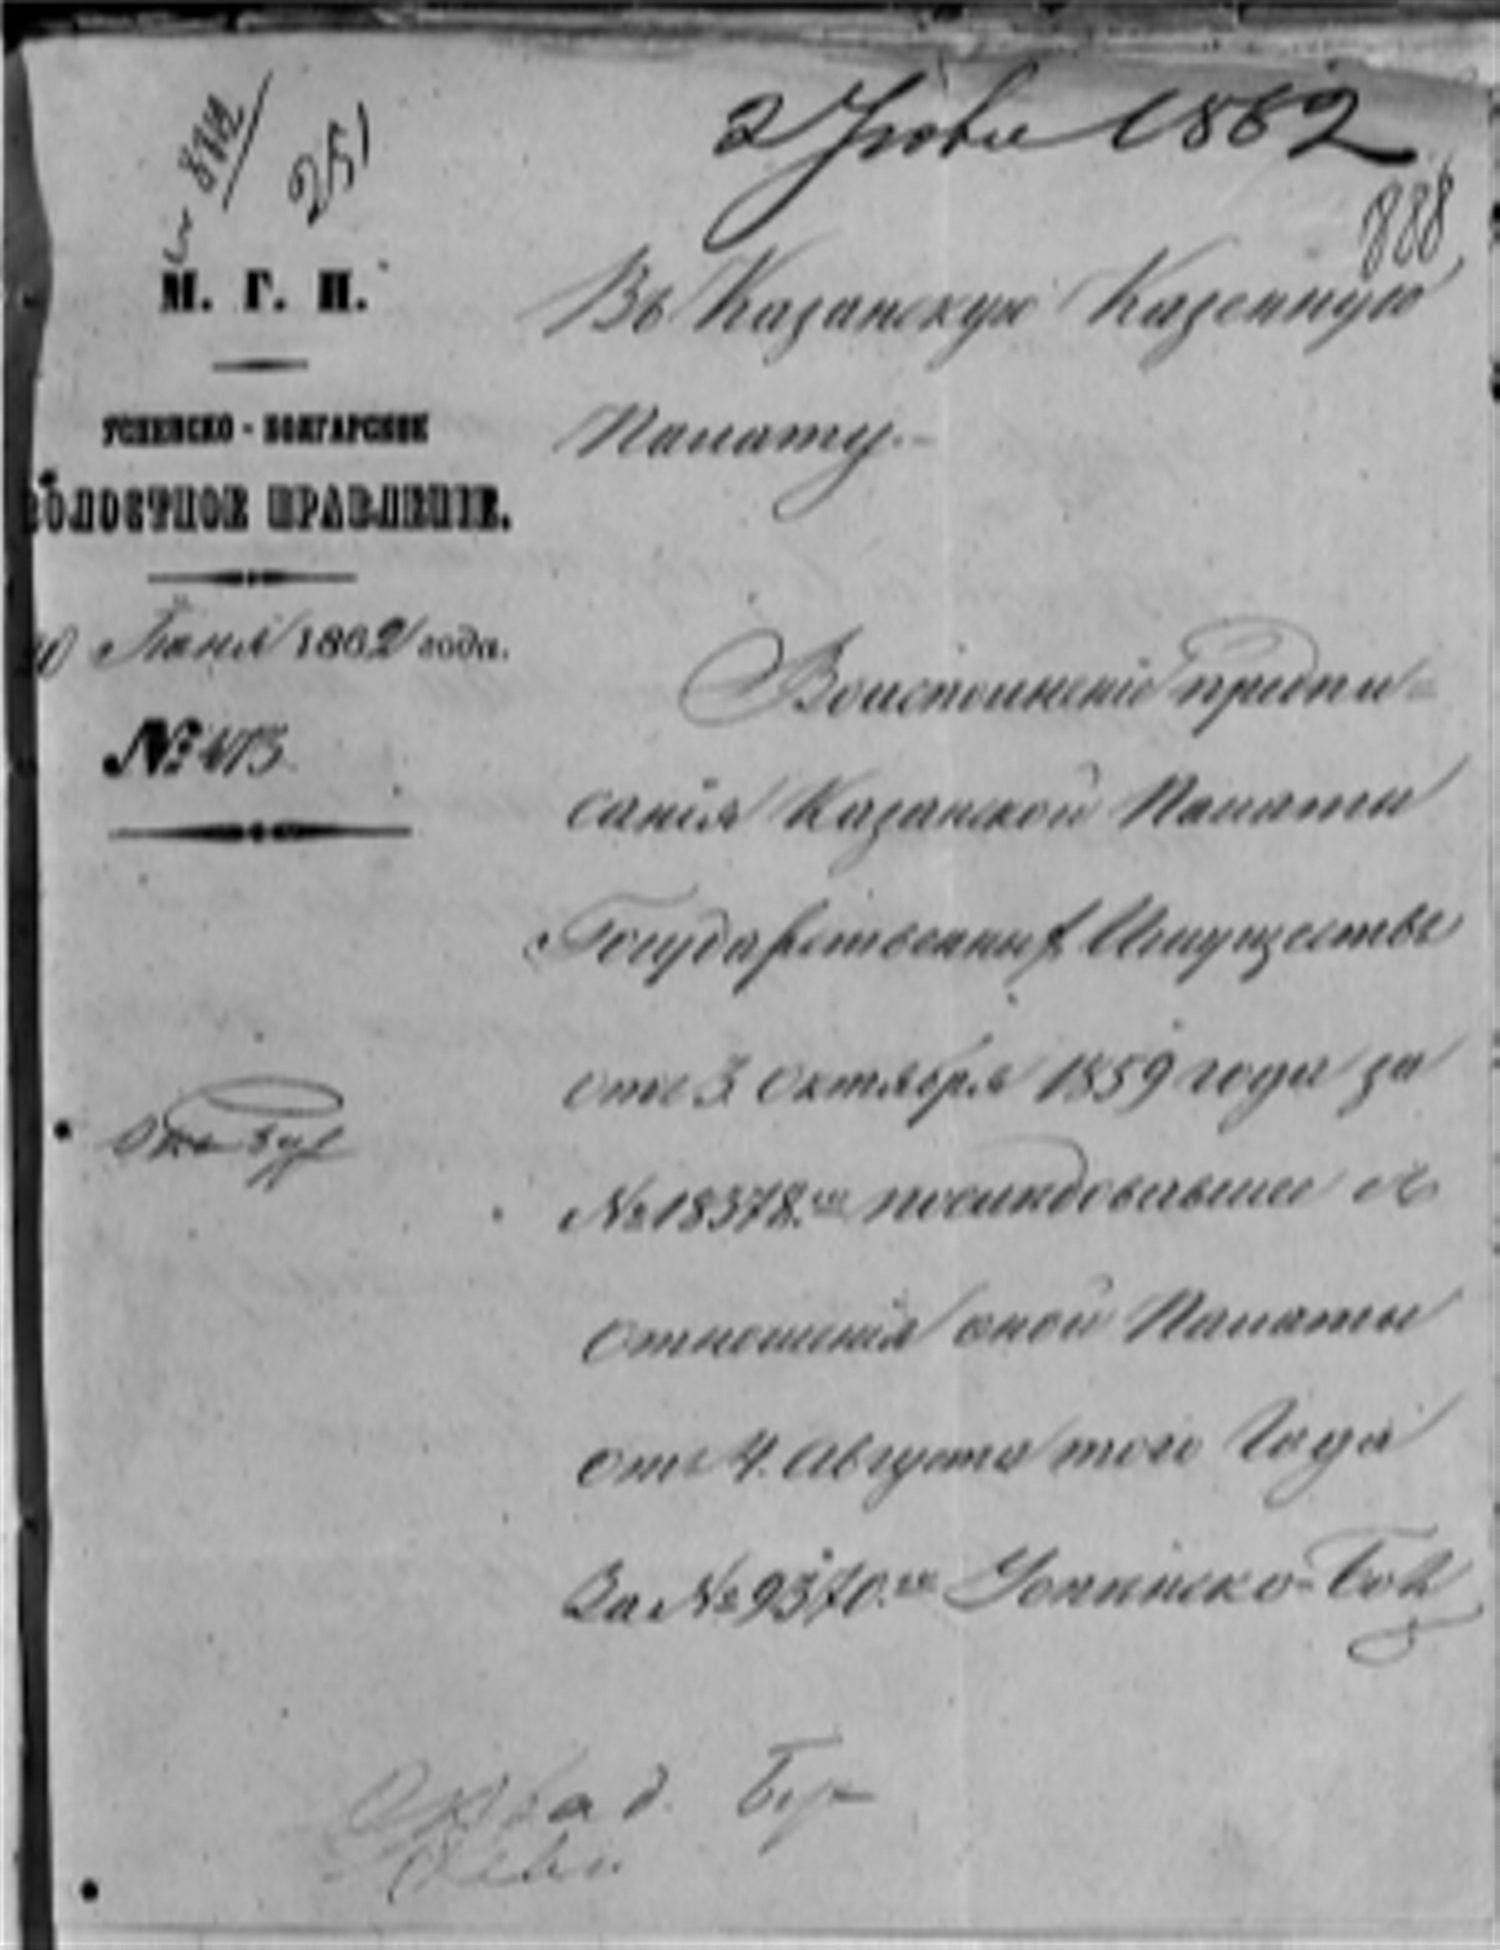 2 Июля 1862
251
888
М. Г. И.
УСПЕНСКО - БОЛГАРСКОЕ
ВОЛОСТНОЕ ПРАВЛЕНІЕ.
Іюня 1862 года.
№
Въ Казанскую Казенную
Палату.
Воисполненіе предпи=
санія Казанской Палаты
Государственныхъ Имуществъ
отъ 3. Октября 1859 года за
№ 18378.мъ последовавшее
отношенія оной Палаты
отъ 4. Августа того Года
За № 9370.мъ Успенско-Бол
Оклад.